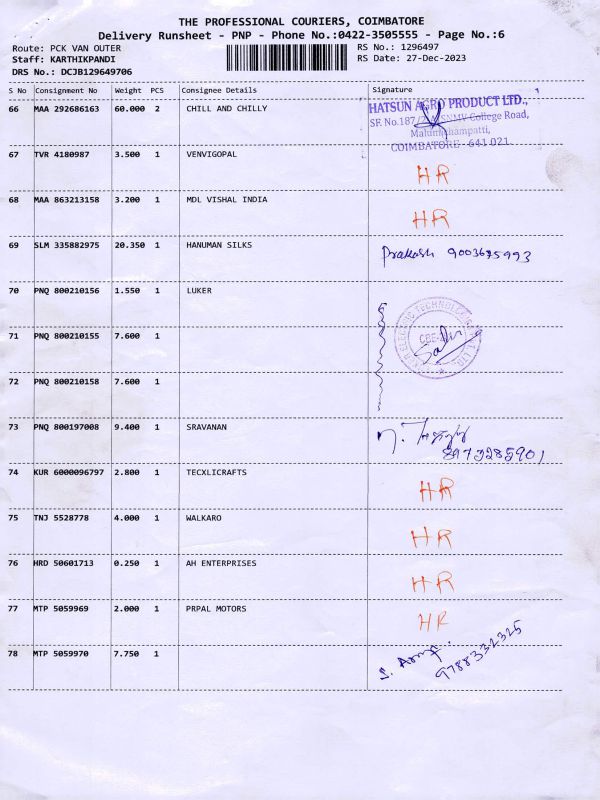 THE PROFESSIONAL COURIERS, COIMBATORE
Delivery Runsheet - PNP - Phone No.:0422-3505555 - Page No.:6
Route: PCK VAN OUTER
RS No.: 1296497
Staff: KARTHIKPANDI
RS Date: 27-Dec-2023
DRS No.: DCJB129649706
S No Consignment No Weight PCS Consignee Details Signature
66 MAA 292686163 60.000 2 CHILL AND CHILLY
HATSUN AGRO PRODUCT LTD.,
SF. No.187/ SNMV College Road,
Malumichampatti,
COIMBATORE - 641 021
67 TVR 4180987 3.500 1 VENVIGOPAL
HR
68 MAA 863213158 3.200 1 MDL VISHAL INDIA
HR
69 SLM 335882975 20.350 1 HANUMAN SILKS Prakash 9003695993
70 PNQ 800210156 1.550 1 LUKER
71 PNQ 800210155 7.600 1
ELECTRIC TECHNOLOGIES PVT. LTD.
72 PNQ 800210158 7.600 1
73 PNQ 800197008 9.400 1 SRAVANAN
8973285901
74 KUR 6000096797 2.800 1 TECXLICRAFTS
HR
75 TNJ 5528778 4.000 1 WALKARO
HR
76 HRD 50601713 0.250 1 AH ENTERPRISES
HR
77 MTP 5059969 2.000 1 PRPAL MOTORS
HR
78 MTP 5059970 7.750 1
9788332325